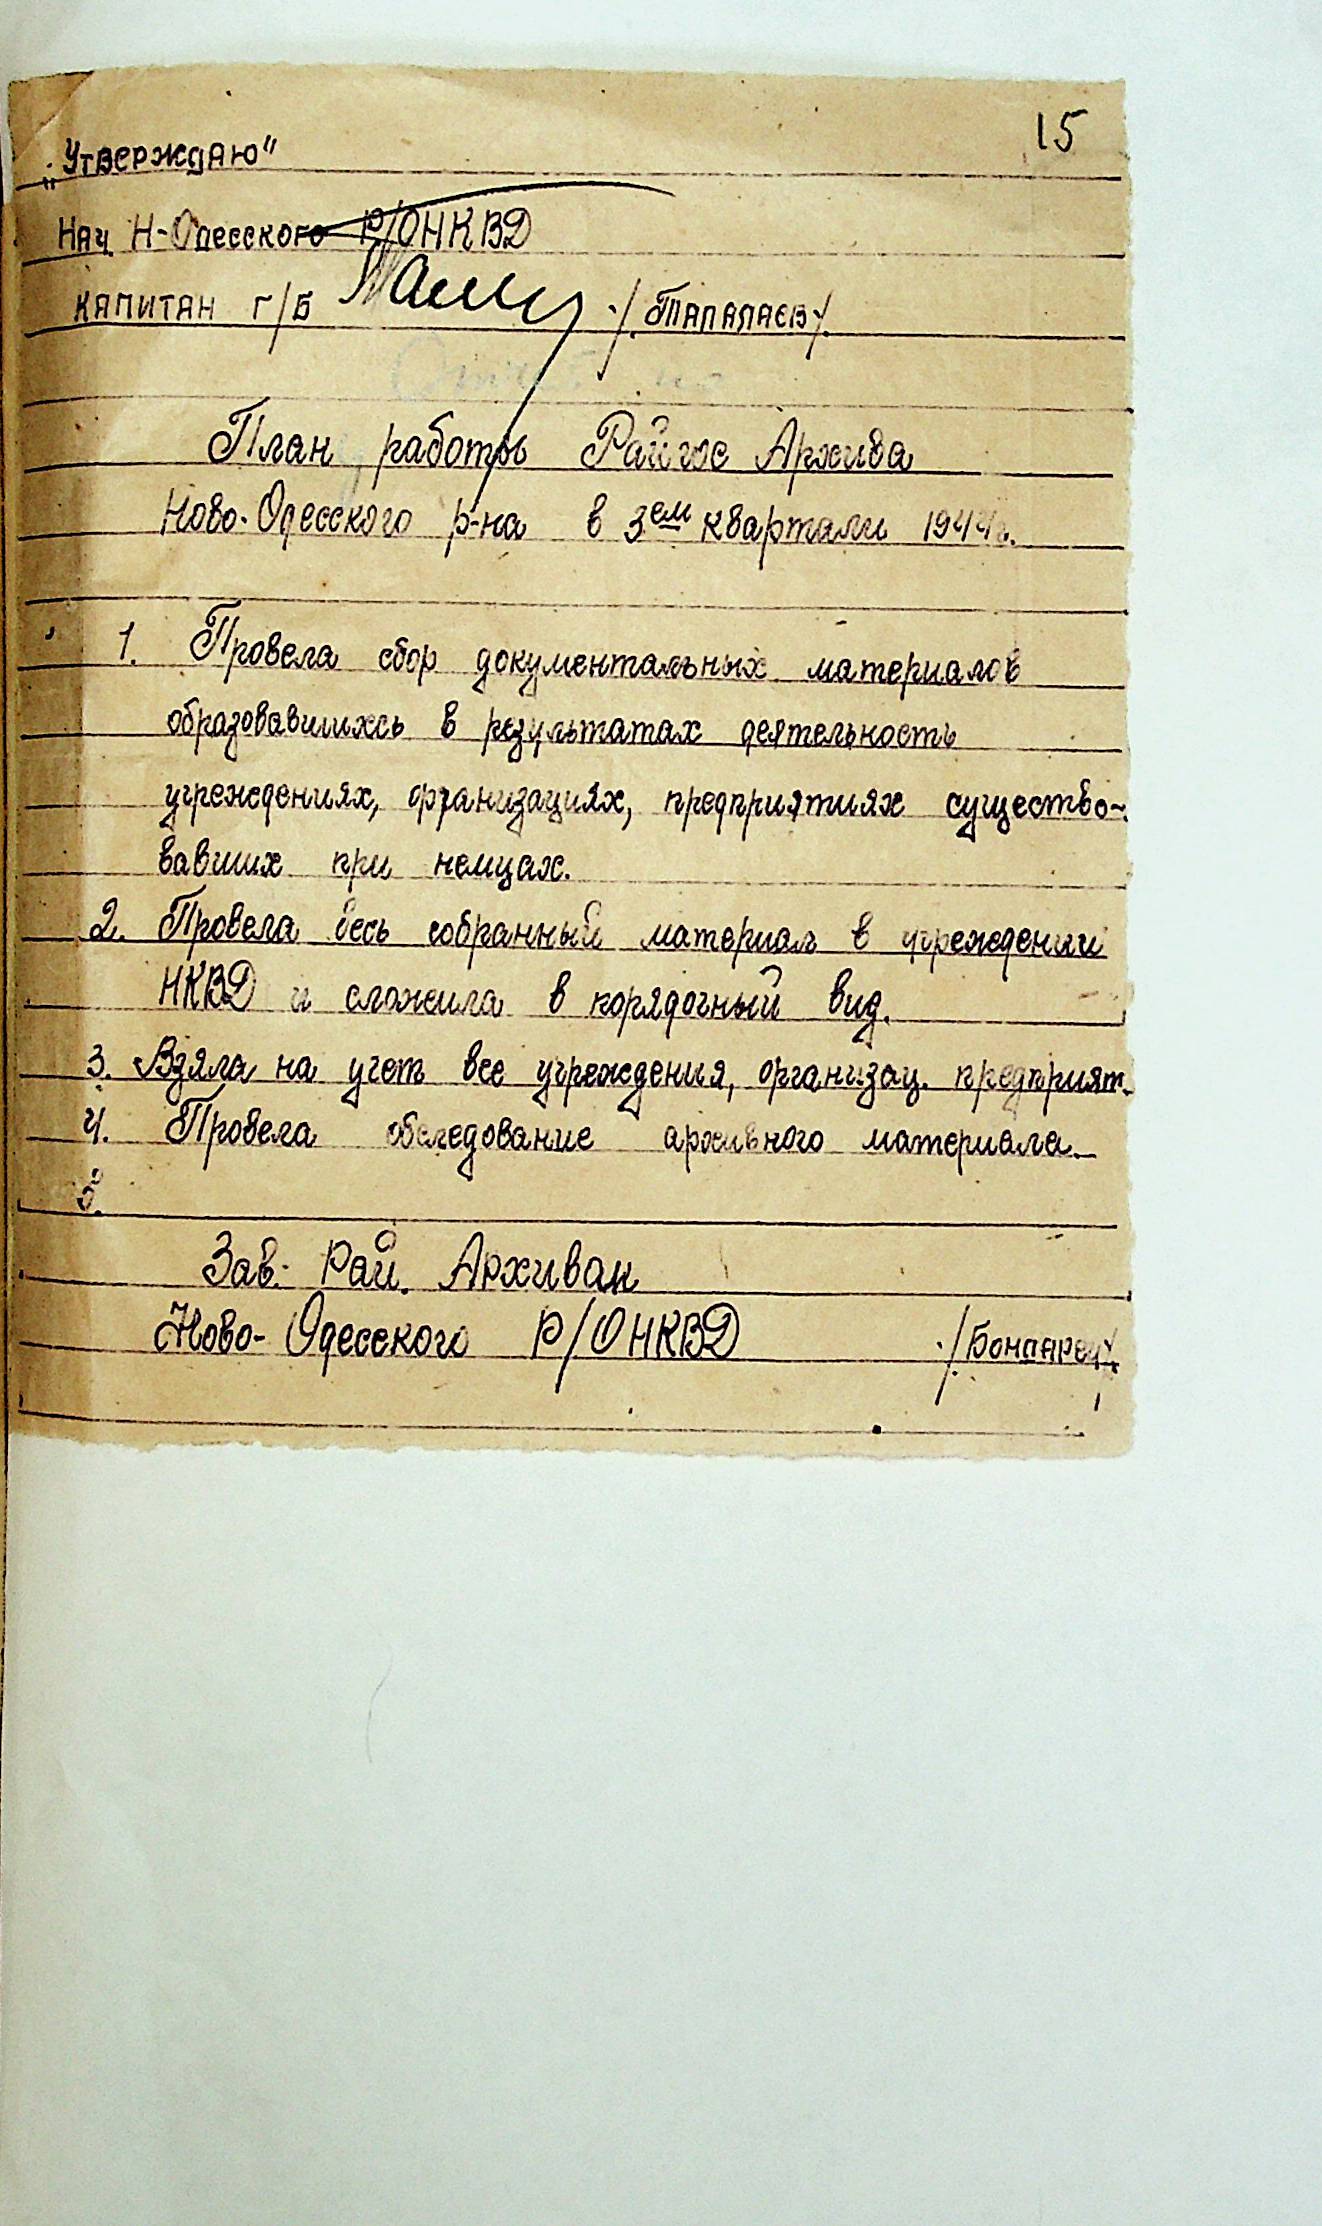 15
„Утверждаю"
Нач. Н-Одесского Р/ОНКВД
капитан г/б /Талалаев/
План работы Райгос Архива
Ново-Одесского р-на в 3ем квартали 1944г.
1. Провела сбор документальных материалов
образовавшихсь в результатах деятельность
учреждениях, организациях, предприятиях существо-
вавших при немцах.
2. Провела весь собранный материал в учреждении
НКВД и сложила в порядочный вид.
3. Взяла на учет все учреждения, организац. предприят.
4. Провела обследование архивного материала.
5.
Зав. Рай. Архивам
Ново-Одесского Р/ОНКВД /Бондарец/